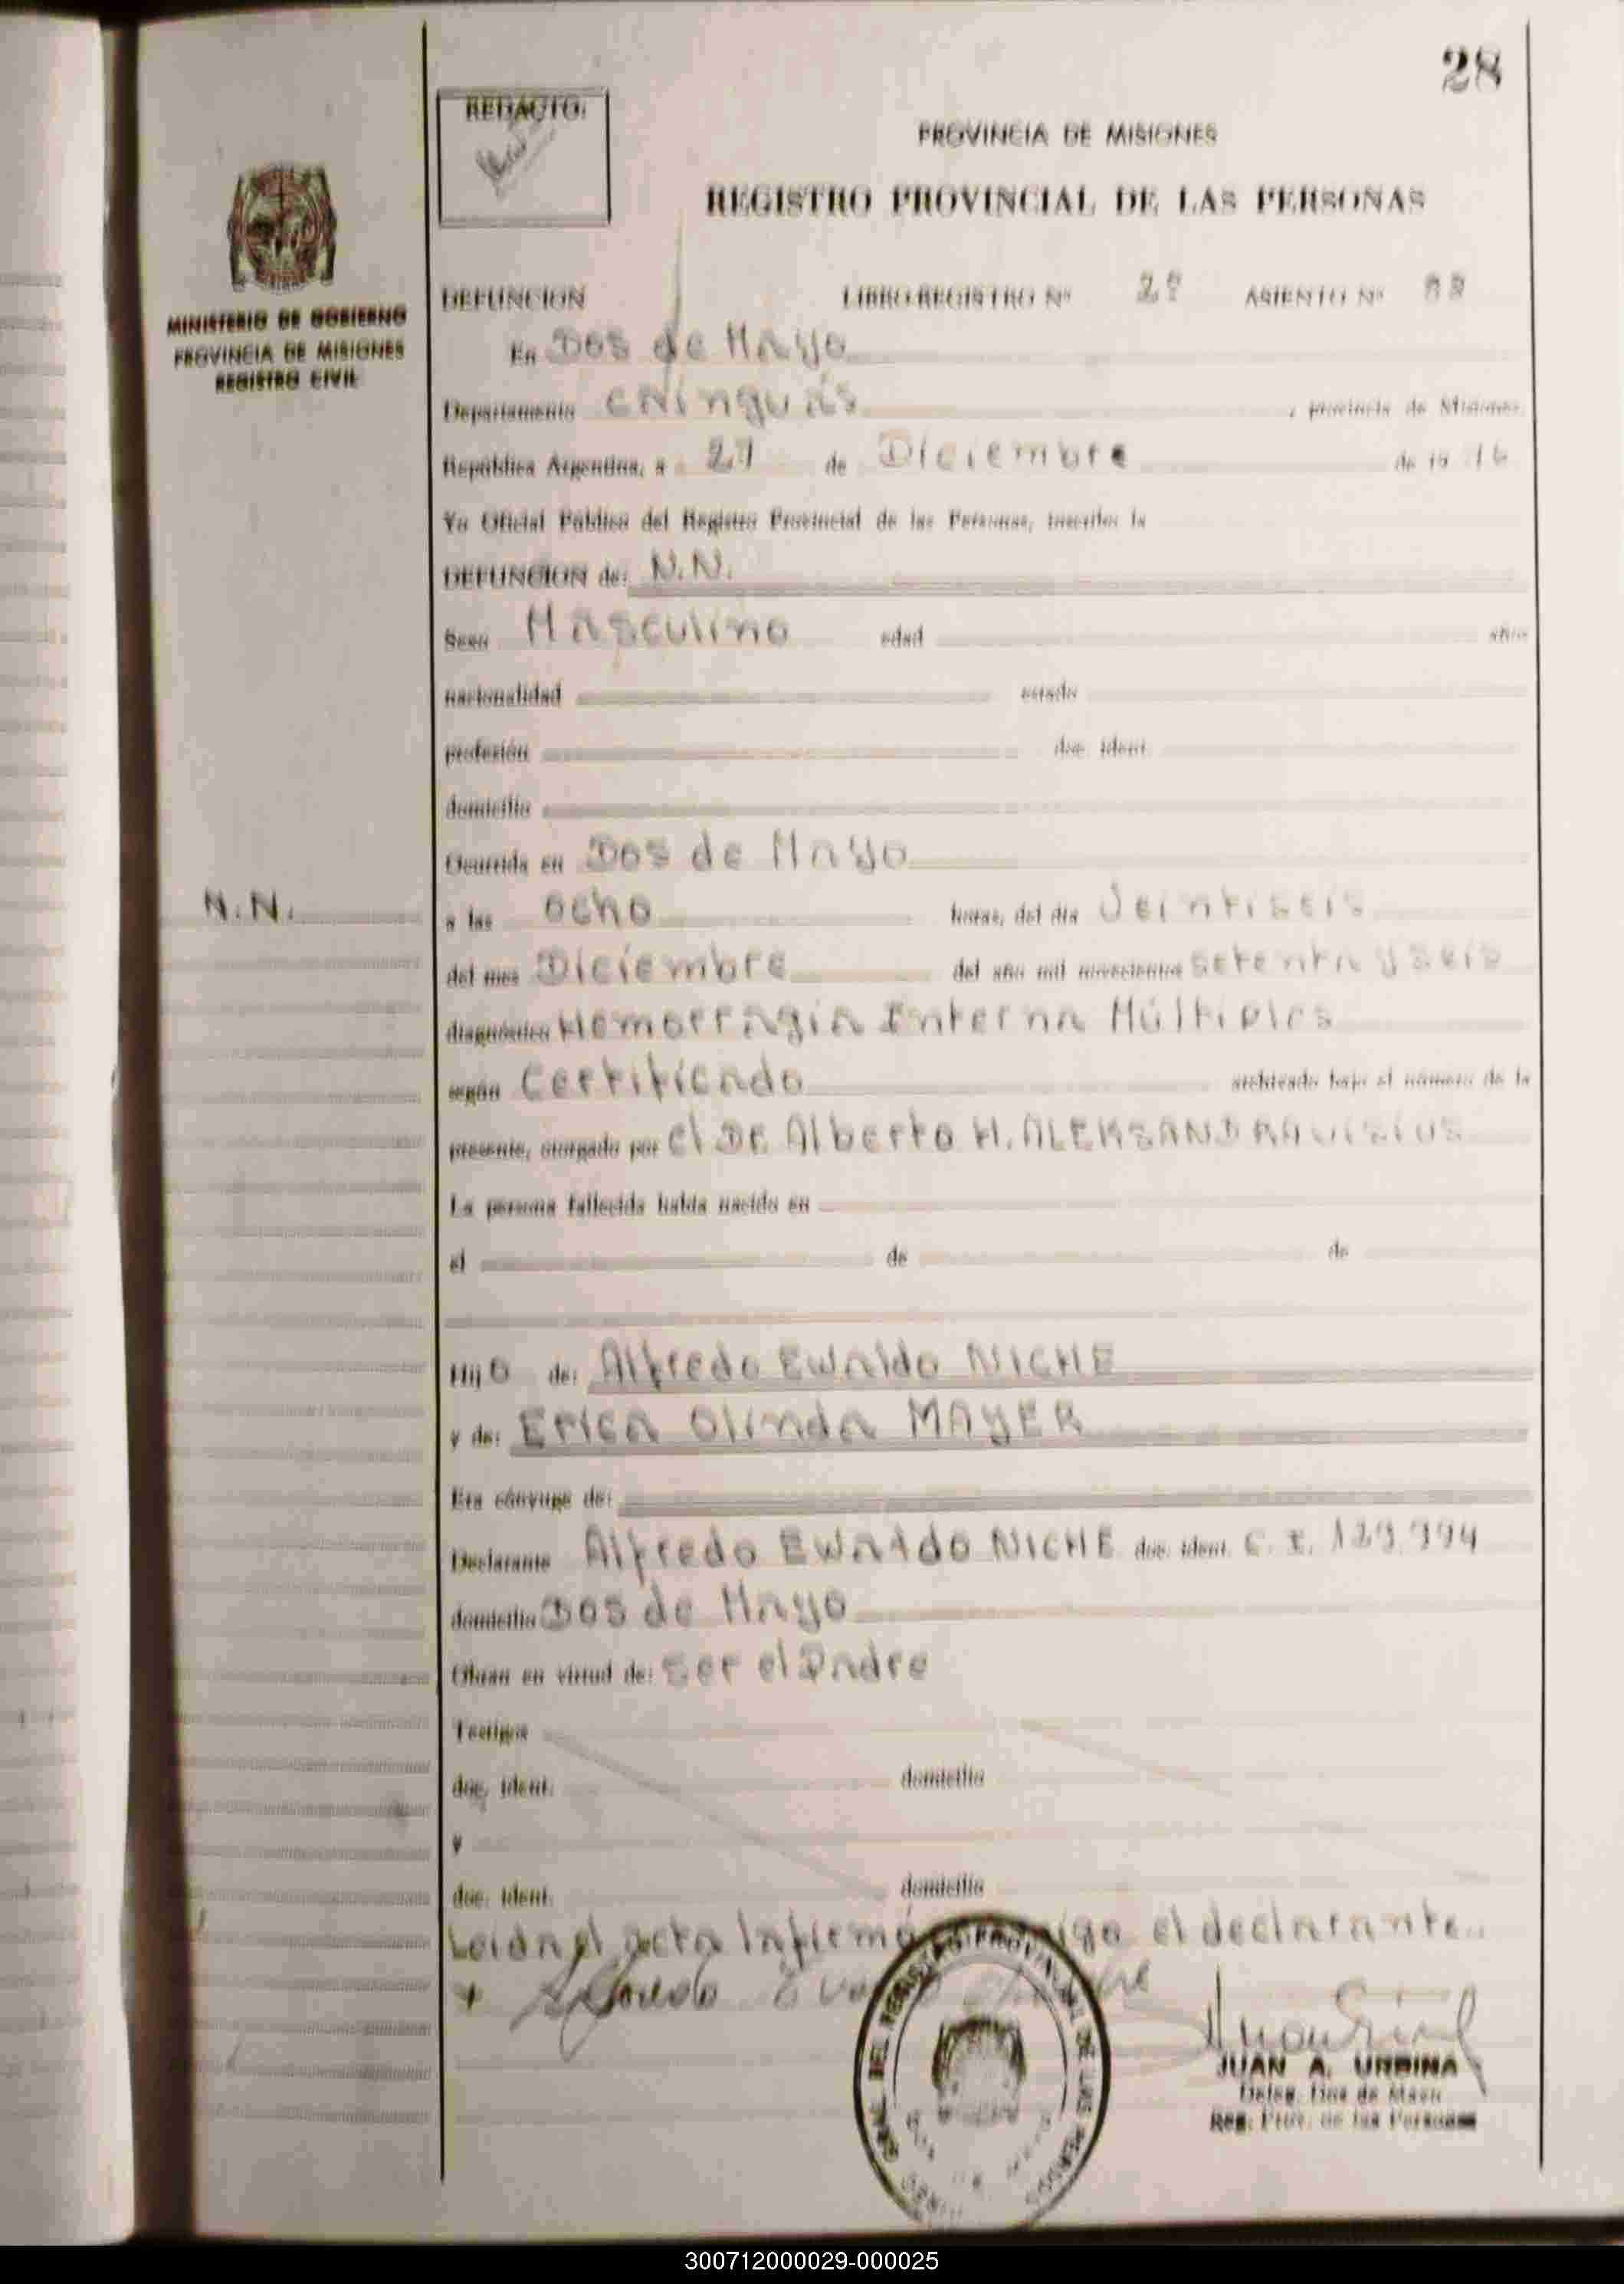 28
REDACTO:
PROVINCIA DE MISIONES
REGISTRO PROVINCIAL DE LAS PERSONAS
MINISTERIO DE GOBIERNO
PROVINCIA DE MISIONES
REGISTRO CIVIL
DEFUNCION LIBRO REGISTRO Nº 2º ASIENTO Nº
En Dos de Mayo
Departamento Cainguás, provincia de Misiones
República Argentina, a 27 de Diciembre de 19 76
Yo Oficial Público del Registro Provincial de las Personas, inscribo la
DEFUNCION de: N.N.
Sexo Masculino edad años
nacionalidad estado
profesión doc. ident.
domicilio
Ocurrida en Dos de Mayo
N.N.
a las ocho horas, del día Veintiseis
del mes Diciembre del año mil novecientos setenta y seis
diagnóstico Hemorragia Interna Múltiples
según Certificado archivado bajo el número de la
presente, otorgado por el Dr. Alberto H. ALEKSANDRAVISIUS
La persona fallecida había nacido en
el de de
Hijo de: Alfredo Ewaldo NICHE
y de: Erica Olinda MAYER
Era cónyuge de:
Declarante Alfredo Ewaldo NICHE doc. ident. C. I. 129.994
domicilio Dos de Mayo
Obran en virtud de: Ser el Padre
Testigos
doc. ident. domicilio
y
doc. ident. domicilio
Leida el acta la firmó el declarante.
Alfredo
JUAN A. URBINA
Deleg. Dos de Mayo
Reg. Prov. de las Personas
300712000029-000025